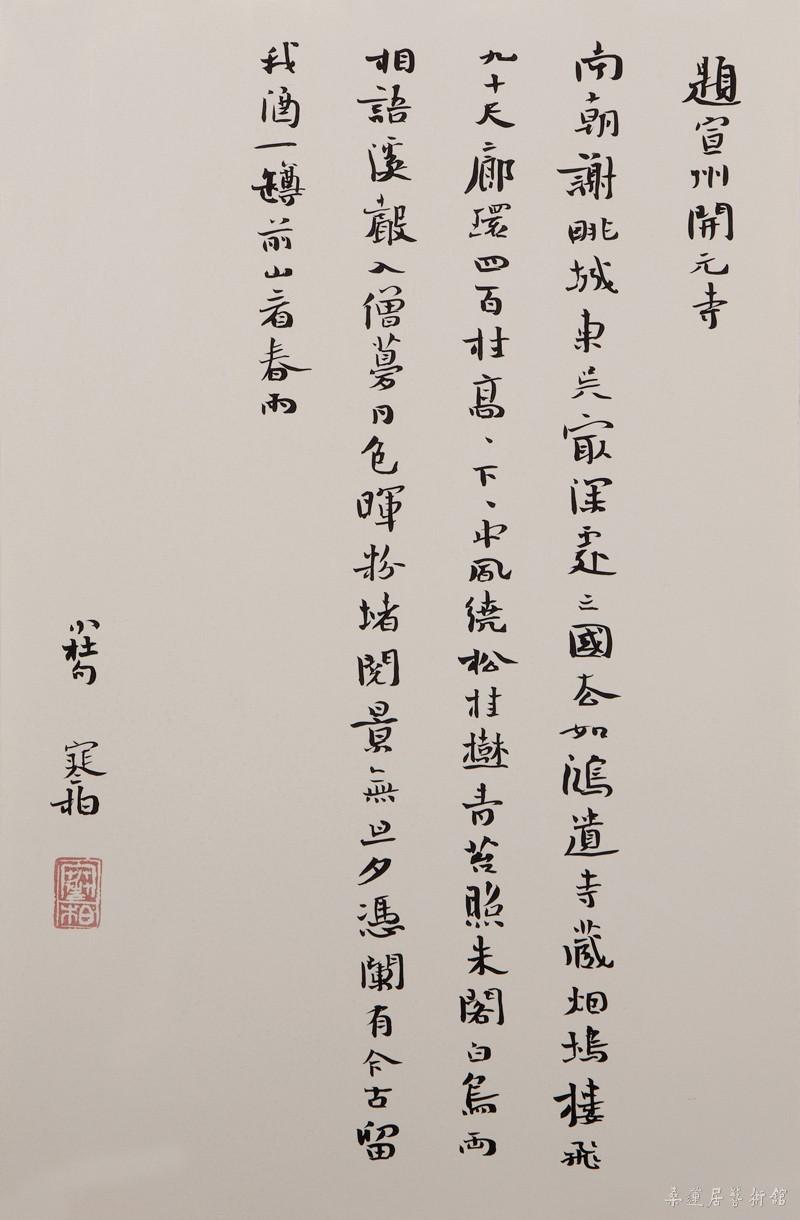 題宣州開元寺
南朝謝朓城東吳冣深處亡國去如鴻遺寺藏烟塢樓飛
九十尺廊環四百柱高、下、中風繞松桂樹青苔照朱閣白鳥兩
相語溪聲入僧夢月色暉粉堵閱景無旦夕憑闌有今古留
我酒一罇前山看春雨
小杜句 寒柏
寒柏
桑蓮居藝術館